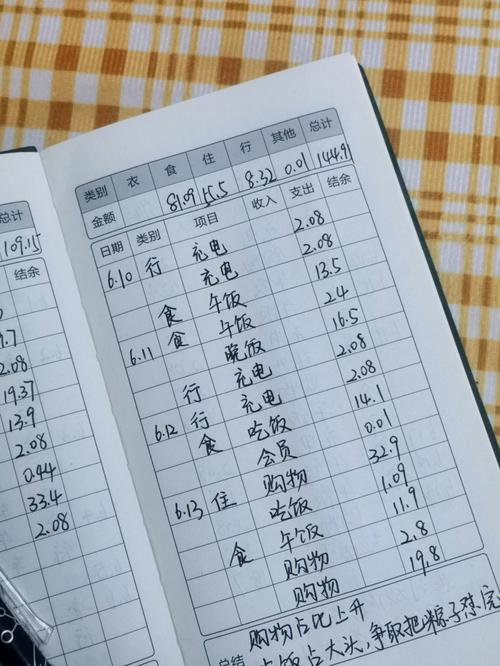 总计
109.15
结余
9.7
2.08
19.37
13.9
2.08
0.44
33.4
2.08
类别 衣 食 住 行 其他 总计
金额 81.09 8.32 0.01 144.91
日期 类别 项目 收入 支出 结余
6.10 行 充电 2.08
充电 2.08
食 午饭 13.5
6.11 食 午饭 24
晚饭 16.5
行 充电 2.08
6.12 行 充电 2.08
食 吃饭 14.1
会员 0.01
6.13 住 购物 32.9
吃饭 1.09
食 午饭 11.9
购物 2.8
购物 19.8
购物占比上升
总结 吃饭占大头，争取把粽子